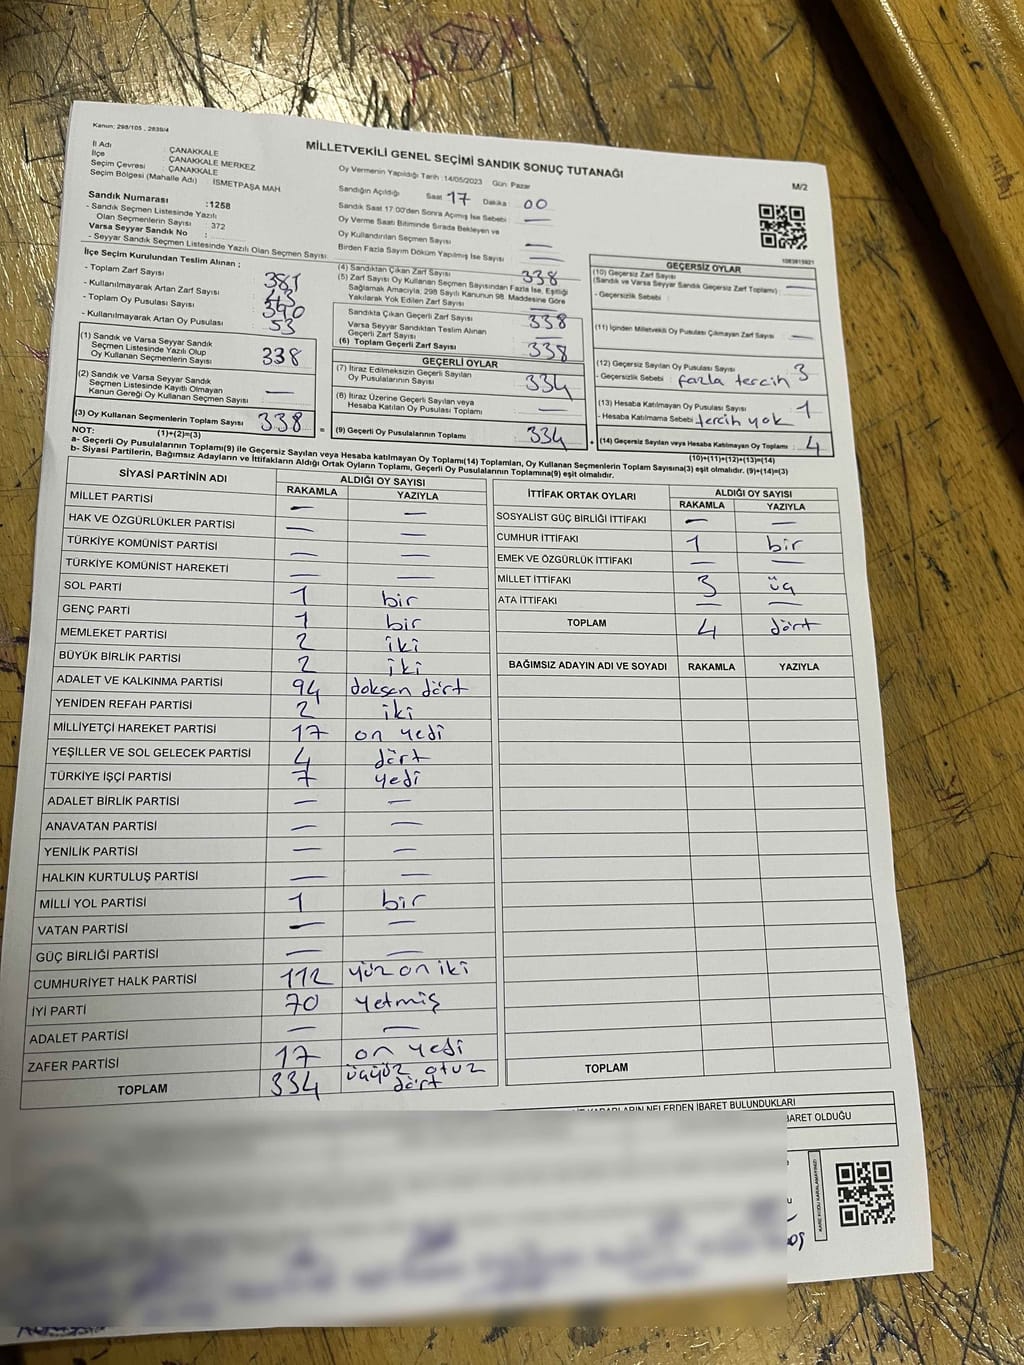 Kanun: 298/105 , 2839/4
MİLLETVEKİLİ GENEL SEÇİMİ SANDIK SONUÇ TUTANAĞI
M/2
İl Adı : ÇANAKKALE
İlçe : ÇANAKKALE MERKEZ
Seçim Çevresi : ÇANAKKALE
Seçim Bölgesi (Mahalle Adı) İSMETPAŞA MAH
Sandık Numarası :1258
- Sandık Seçmen Listesinde Yazılı
Olan Seçmenlerin Sayısı : 372
Varsa Seyyar Sandık No :
- Seyyar Sandık Seçmen Listesinde Yazılı Olan Seçmen Sayısı:
Oy Vermenin Yapıldığı Tarih :14/05/2023 Gün: Pazar
Sandığın Açıldığı Saat 17 Dakika 00
Sandık Saat 17.00'den Sonra Açılmış İse Sebebi —
Oy Verme Saati Bitiminde Sırada Bekleyen ve
Oy Kullandırılan Seçmen Sayısı —
Birden Fazla Sayım Döküm Yapılmış İse Sayısı —
İlçe Seçim Kurulundan Teslim Alınan ;
- Toplam Zarf Sayısı : 381
- Kullanılmayarak Artan Zarf Sayısı : 43
- Toplam Oy Pusulası Sayısı : 390
- Kullanılmayarak Artan Oy Pusulası : 53
(1) Sandık ve Varsa Seyyar Sandık
Seçmen Listesinde Yazılı Olup
Oy Kullanan Seçmenlerin Sayısı : 338
(2) Sandık ve Varsa Seyyar Sandık
Seçmen Listesinde Kayıtlı Olmayan
Kanun Gereği Oy Kullanan Seçmen Sayısı : —
(3) Oy Kullanan Seçmenlerin Toplam Sayısı : 338
(1)+(2)=(3)
(4) Sandıktan Çıkan Zarf Sayısı : 338
(5) Zarf Sayısı Oy Kullanan Seçmen Sayısından Fazla İse, Eşitliği
Sağlamak Amacıyla, 298 Sayılı Kanunun 98. Maddesine Göre
Yakılarak Yok Edilen Zarf Sayısı : —
Sandıkta Çıkan Geçerli Zarf Sayısı : 338
Varsa Seyyar Sandıktan Teslim Alınan
Geçerli Zarf Sayısı : —
(6) Toplam Geçerli Zarf Sayısı : 338
GEÇERLİ OYLAR
(7) İtiraz Edilmeksizin Geçerli Sayılan
Oy Pusulasının Sayısı : 334
(8) İtiraz Üzerine Geçerli Sayılan veya
Hesaba Katılan Oy Pusulası Toplamı : —
= (9) Geçerli Oy Pusulalarının Toplamı : 334
1083915921
GEÇERSİZ OYLAR
(10) Geçersiz Zarf Sayısı
(Sandık ve Varsa Seyyar Sandık Geçersiz Zarf Toplamı) : —
- Geçersizlik Sebebi :
(11) İçinden Milletvekili Oy Pusulası Çıkmayan Zarf Sayısı : —
(12) Geçersiz Sayılan Oy Pusulası Sayısı : 3
- Geçersizlik Sebebi : fazla tercih
(13) Hesaba Katılmayan Oy Pusulası Sayısı : 1
- Hesaba Katılmama Sebebi : tercih yok
+ (14) Geçersiz Sayılan veya Hesaba Katılmayan Oy Toplamı : 4
(10)+(11)+(12)+(13)=(14)
NOT:
a- Geçerli Oy Pusulalarının Toplamı(9) ile Geçersiz Sayılan veya Hesaba katılmayan Oy Toplamı(14) Toplamları, Oy Kullanan Seçmenlerin Toplam Sayısına(3) eşit olmalıdır. (9)+(14)=(3)
b- Siyasi Partilerin, Bağımsız Adayların ve İttifakların Aldığı Ortak Oyların Toplamı, Geçerli Oy Pusulalarının Toplamına(9) eşit olmalıdır.
SİYASİ PARTİNİN ADI ALDIĞI OY SAYISI
RAKAMLA YAZIYLA
MİLLET PARTİSİ — —
HAK VE ÖZGÜRLÜKLER PARTİSİ — —
TÜRKİYE KOMÜNİST PARTİSİ — —
TÜRKİYE KOMÜNİST HAREKETİ — —
SOL PARTİ 1 bir
GENÇ PARTİ 1 bir
MEMLEKET PARTİSİ 2 iki
BÜYÜK BİRLİK PARTİSİ 2 iki
ADALET VE KALKINMA PARTİSİ 94 doksan dört
YENİDEN REFAH PARTİSİ 2 iki
MİLLİYETÇİ HAREKET PARTİSİ 17 on yedi
YEŞİLLER VE SOL GELECEK PARTİSİ 4 dört
TÜRKİYE İŞÇİ PARTİSİ 7 yedi
ADALET BİRLİK PARTİSİ — —
ANAVATAN PARTİSİ — —
YENİLİK PARTİSİ — —
HALKIN KURTULUŞ PARTİSİ — —
MİLLİ YOL PARTİSİ 1 bir
VATAN PARTİSİ — —
GÜÇ BİRLİĞİ PARTİSİ — —
CUMHURİYET HALK PARTİSİ 112 yüz on iki
İYİ PARTİ 70 yetmiş
ADALET PARTİSİ — —
ZAFER PARTİSİ 17 on yedi
TOPLAM 334 üçyüz otuz dört
İTTİFAK ORTAK OYLARI ALDIĞI OY SAYISI
RAKAMLA YAZIYLA
SOSYALİST GÜÇ BİRLİĞİ İTTİFAKI — —
CUMHUR İTTİFAKI 1 bir
EMEK VE ÖZGÜRLÜK İTTİFAKI — —
MİLLET İTTİFAKI 3 üç
ATA İTTİFAKI — —
TOPLAM 4 dört
BAĞIMSIZ ADAYIN ADI VE SOYADI RAKAMLA YAZIYLA
TOPLAM
KARARLARIN NELERDEN İBARET BULUNDUKLARI
İBARET OLDUĞU
KARE KODU KARALAMAYINIZ!